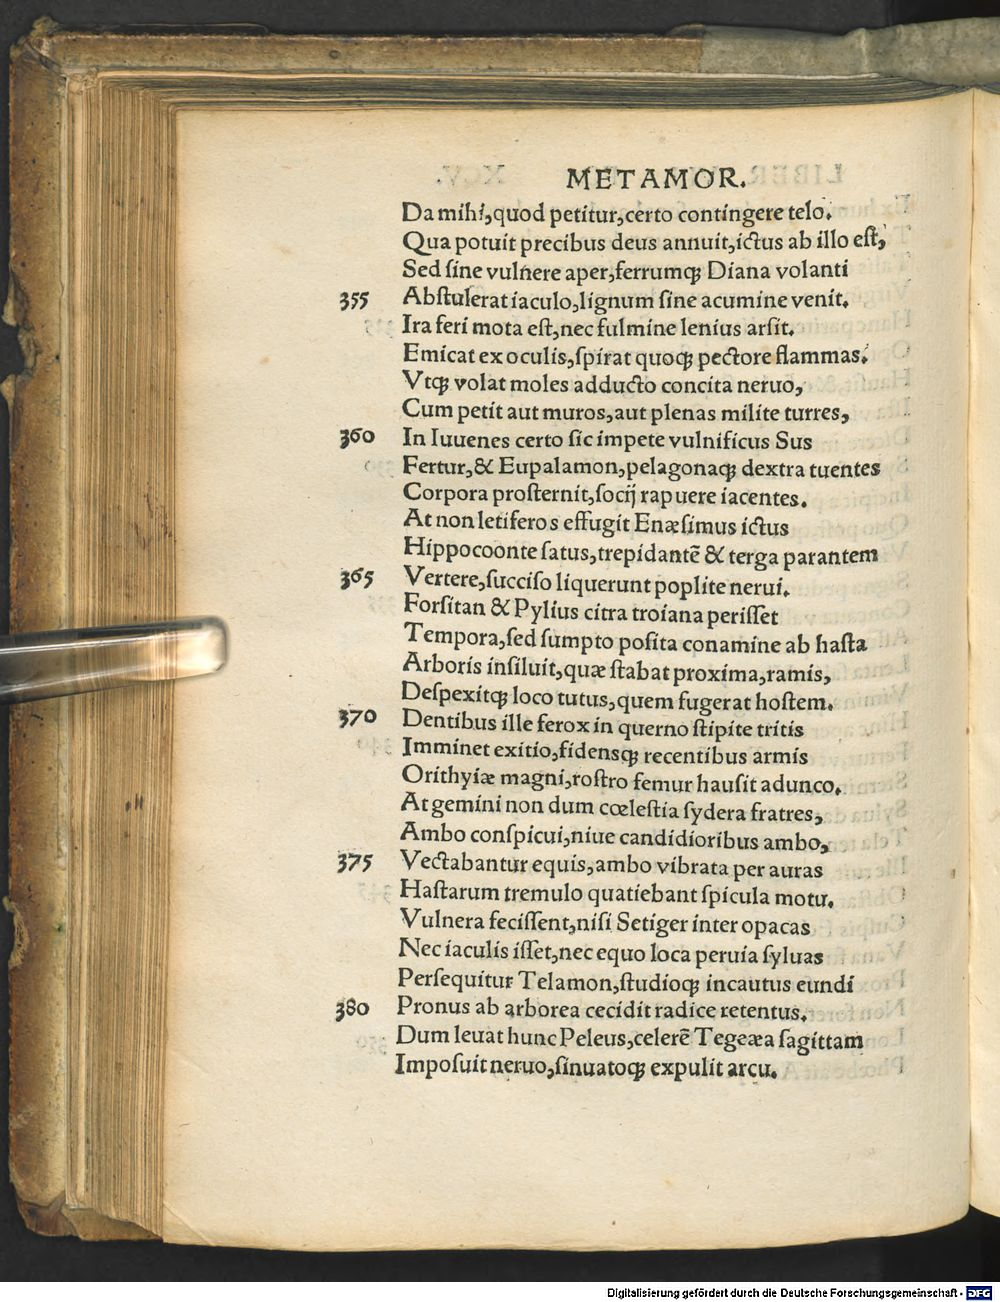 METAMOR.
Da mihi,quod petitur,certo contingere telo.
Qua potuit precibus deus annuit,ictus ab illo eſt,
Sed ſine vulnere aper,ferrumqꝫ Diana volanti
355 Abſtulerat iaculo,lignum ſine acumine venit.
Ira feri mota eſt,nec fulmine lenius arſit.
Emicat ex oculis,ſpirat quoqꝫ pectore flammas.
Vtqꝫ volat moles adducto concita neruo,
Cum petit aut muros,aut plenas milite turres,
360 In Iuuenes certo ſic impete vulnificus Sus
Fertur,& Eupalamon,pelagonaqꝫ dextra tuentes
Corpora proſternit,ſocij rapuere iacentes.
At non letiferos effugit Enæſimus ictus
Hippocoonte ſatus,trepidantē & terga parantem
365 Vertere,ſucciſo liquerunt poplite nerui.
Forſitan & Pylius citra troiana periſſet
Tempora,ſed ſumpto poſita conamine ab haſta
Arboris inſiluit,quæ ſtabat proxima,ramis,
Deſpexitqꝫ loco tutus,quem fugerat hoſtem.
370 Dentibus ille ferox in querno ſtipite tritis
Imminet exitio,fidensqꝫ recentibus armis
Orithyiæ magni,roſtro femur hauſit adunco.
At gemini non dum cœleſtia ſydera fratres,
Ambo conſpicui,niue candidioribus ambo,
375 Vectabantur equis,ambo vibrata per auras
Haſtarum tremulo quatiebant ſpicula motu.
Vulnera feciſſent,niſi Setiger inter opacas
Nec iaculis iſſet,nec equo loca peruia ſyluas
Perſequitur Telamon,ſtudioqꝫ incautus eundi
380 Pronus ab arborea cecidit radice retentus.
Dum leuat hunc Peleus,celerē Tegeæa ſagittam
Impoſuit neruo,ſinuatoqꝫ expulit arcu.
Digitalisierung gefördert durch die Deutsche Forschungsgemeinschaft - DFG